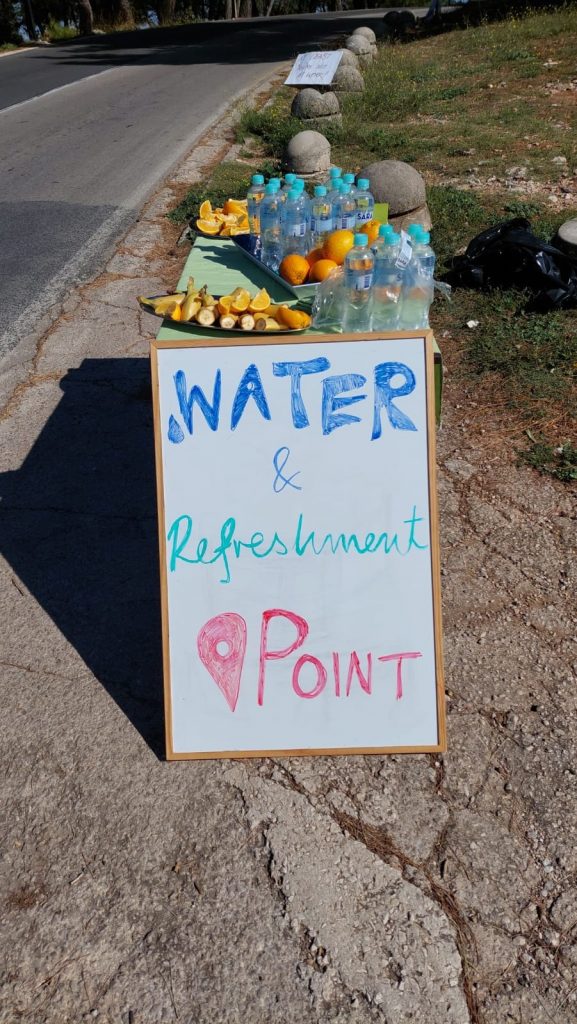 WATER
&
Refreshment
Point